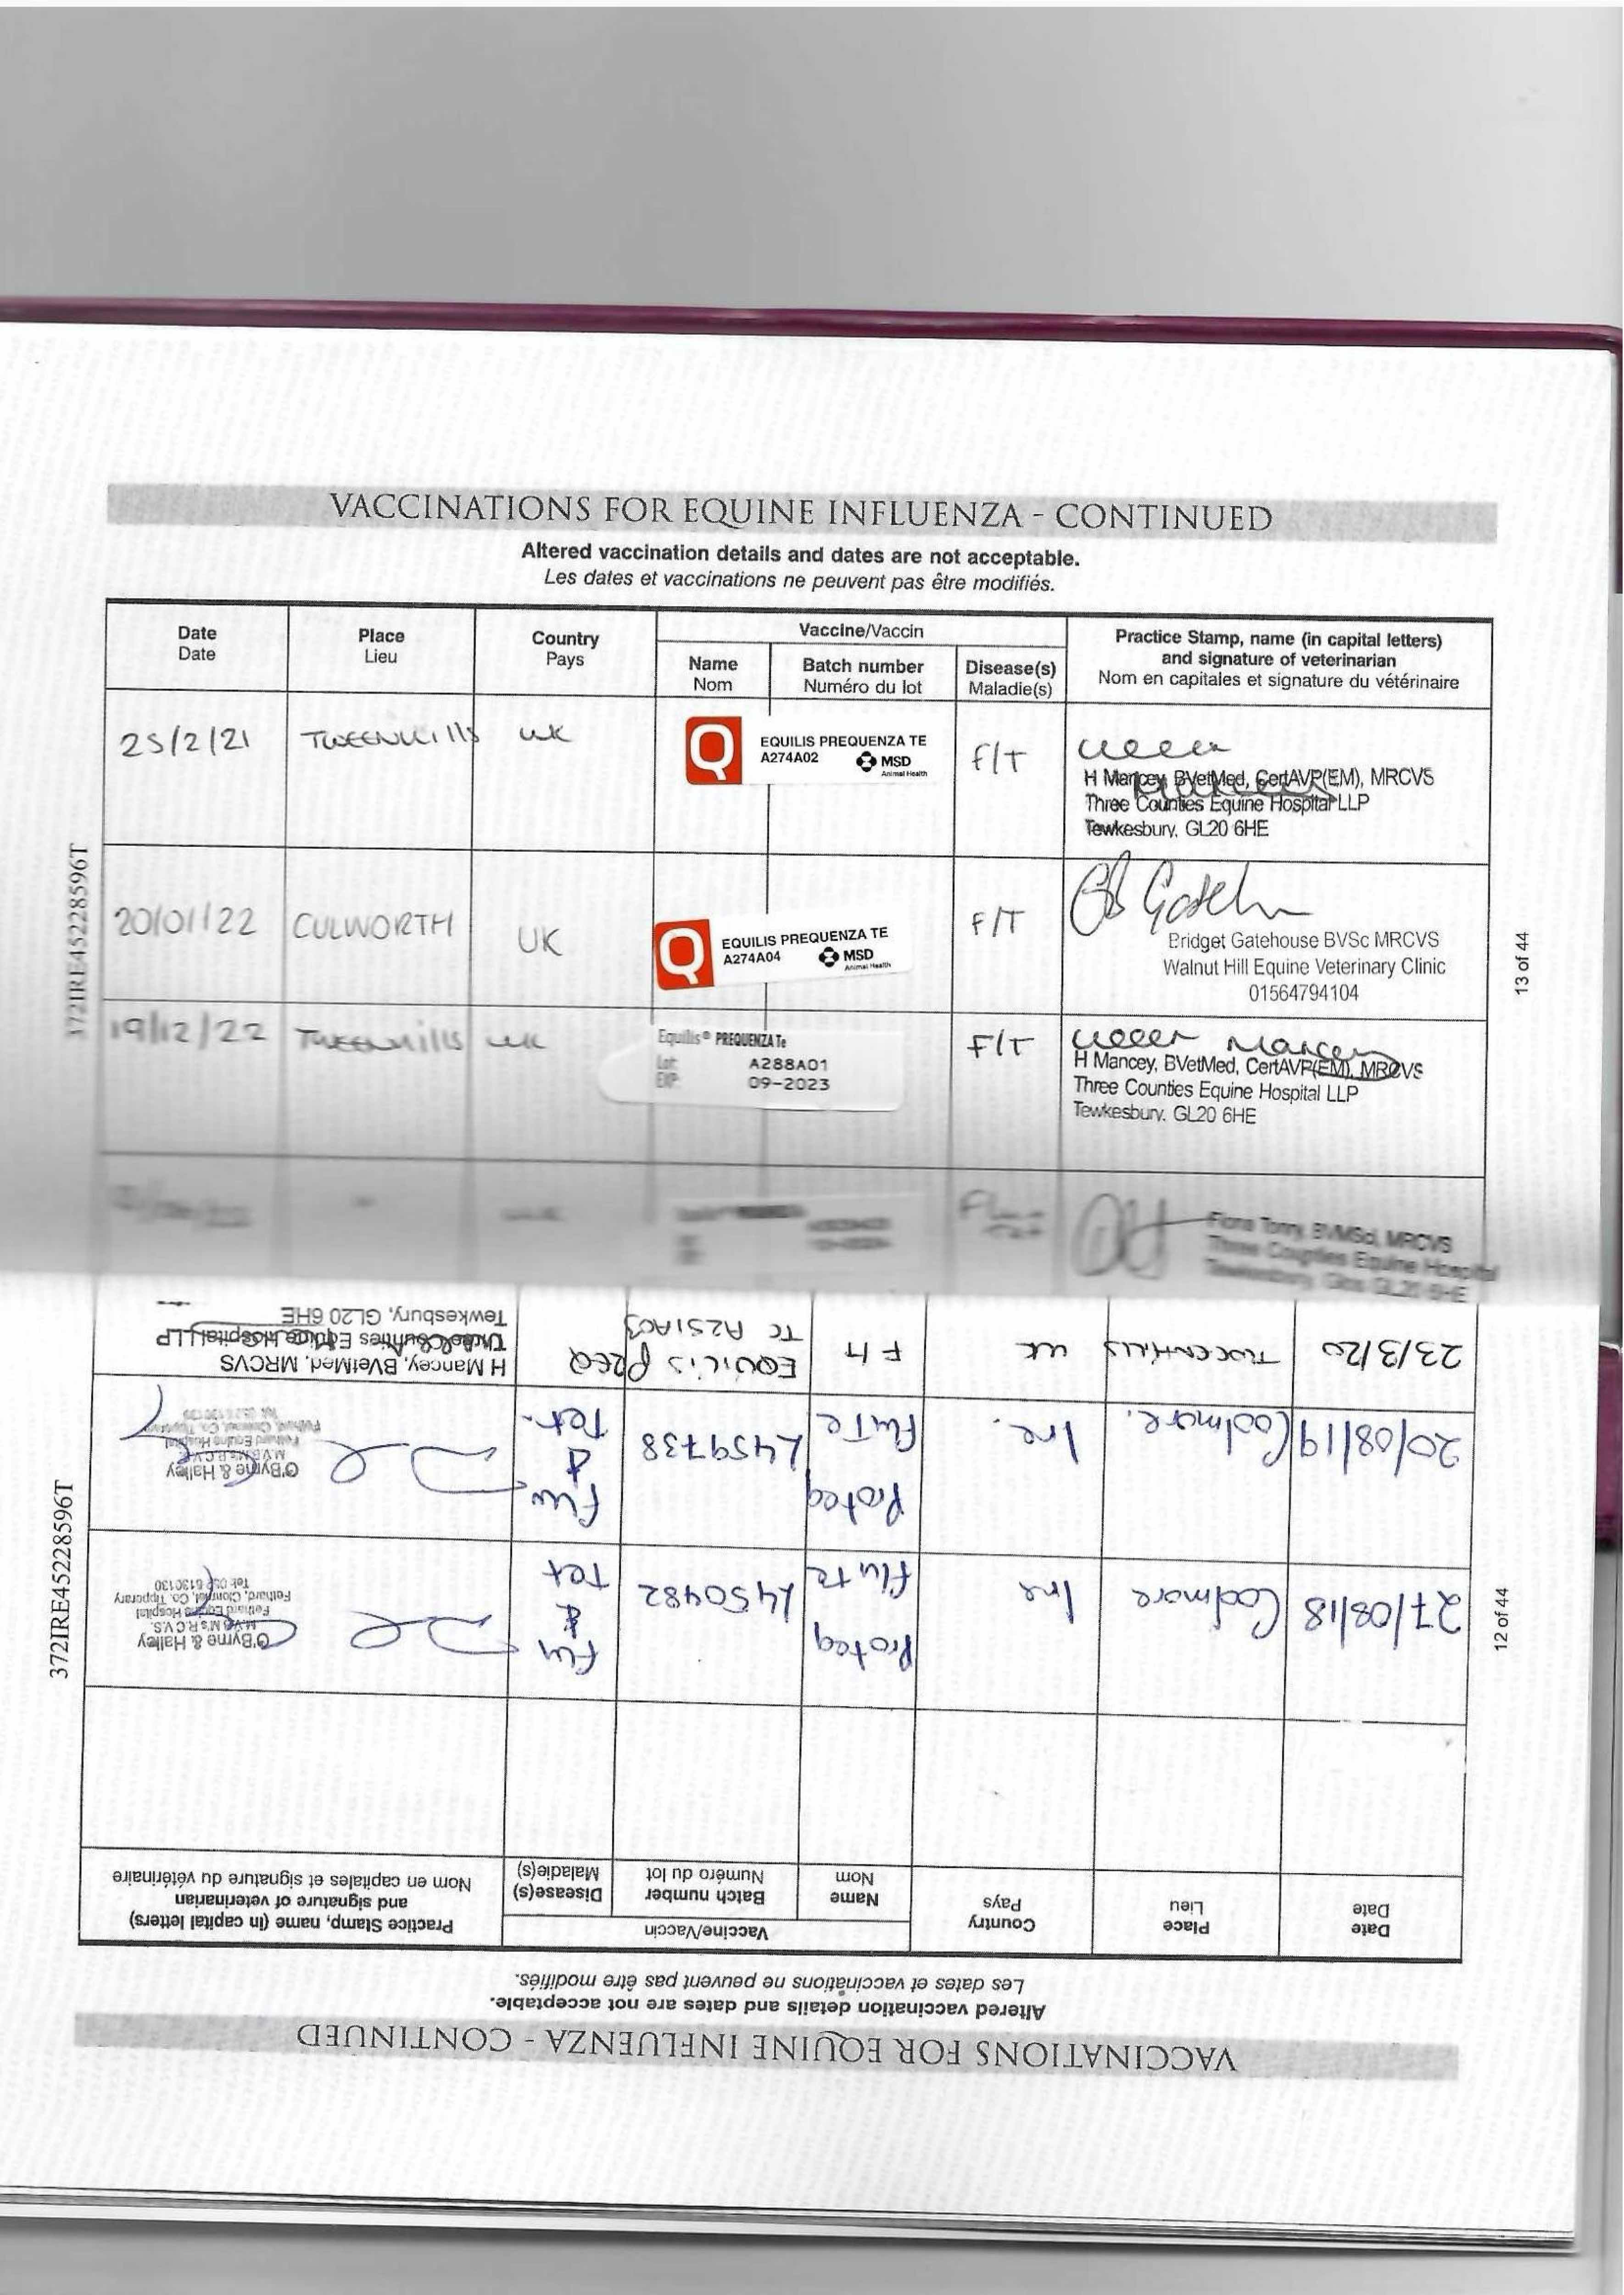 VACCINATIONS FOR EQUINE INFLUENZA - CONTINUED
Altered vaccination details and dates are not acceptable.
Les dates et vaccinations ne peuvent pas être modifiés.
Date
Date
Place
Lieu
Country
Pays
Vaccine/Vaccin
Name
Nom
Batch number
Numéro du lot
Disease(s)
Maladie(s)
Practice Stamp, name (in capital letters)
and signature of veterinarian
Nom en capitales et signature du vétérinaire
25/2/21
TWEENHills
UK
Q
EQUILIS PREQUENZA TE
A274A02
MSD
Animal Health
F/T
H Mancey, BVetMed, CertAVP(EM), MRCVS
Three Counties Equine Hospital LLP
Tewkesbury, GL20 6HE
20/01/22
CULWORTH
UK
Q
EQUILIS PREQUENZA TE
A274A04
MSD
Animal Health
F/T
Bridget Gatehouse BVSc MRCVS
Walnut Hill Equine Veterinary Clinic
01564794104
19/12/22
TWEENHills
UK
Equilis® PREQUENZA Te
Lot: A288A01
EXP: 09-2023
F/T
Mancey
H Mancey, BVetMed, CertAVP(EM), MRCVS
Three Counties Equine Hospital LLP
Tewkesbury, GL20 6HE
Flu
Fiona Tonny, BVMSci, MRCVS
Three Counties Equine Hospital
Tewkesbury, Glos GL20 6HE
372IRE45228596T
13 of 44
VACCINATIONS FOR EQUINE INFLUENZA - CONTINUED
Altered vaccination details and dates are not acceptable.
Les dates et vaccinations ne peuvent pas être modifiés.
Date
Date
Place
Lieu
Country
Pays
Vaccine/Vaccin
Name
Nom
Batch number
Numéro du lot
Disease(s)
Maladie(s)
Practice Stamp, name (in capital letters)
and signature of veterinarian
Nom en capitales et signature du vétérinaire
27/08/18
Coolmore
Ire
Proteq
Flute
L450482
Flu
&
Tet
O'Byrne & Halley
M.V.B M's R.C.V.S.
Fethard Equine Hospital
Fethard, Clonmel, Co. Tipperary
Tel: 052 6130130
20/08/19
Coolmore.
Ire.
Proteq
FluTe
L459738
Flu
&
Tet.
O'Byrne & Halley
M.V.B M's R.C.V.S.
Fethard Equine Hospital
Fethard, Clonmel, Co. Tipperary
23/3/20
TWEENHills
UK
F/T
EQUILIS PREQ
TE A251A03
H Mancey, BVetMed, MRCVS
Three Counties Equine Hospital LLP
Tewkesbury, GL20 6HE
372IRE45228596T
12 of 44